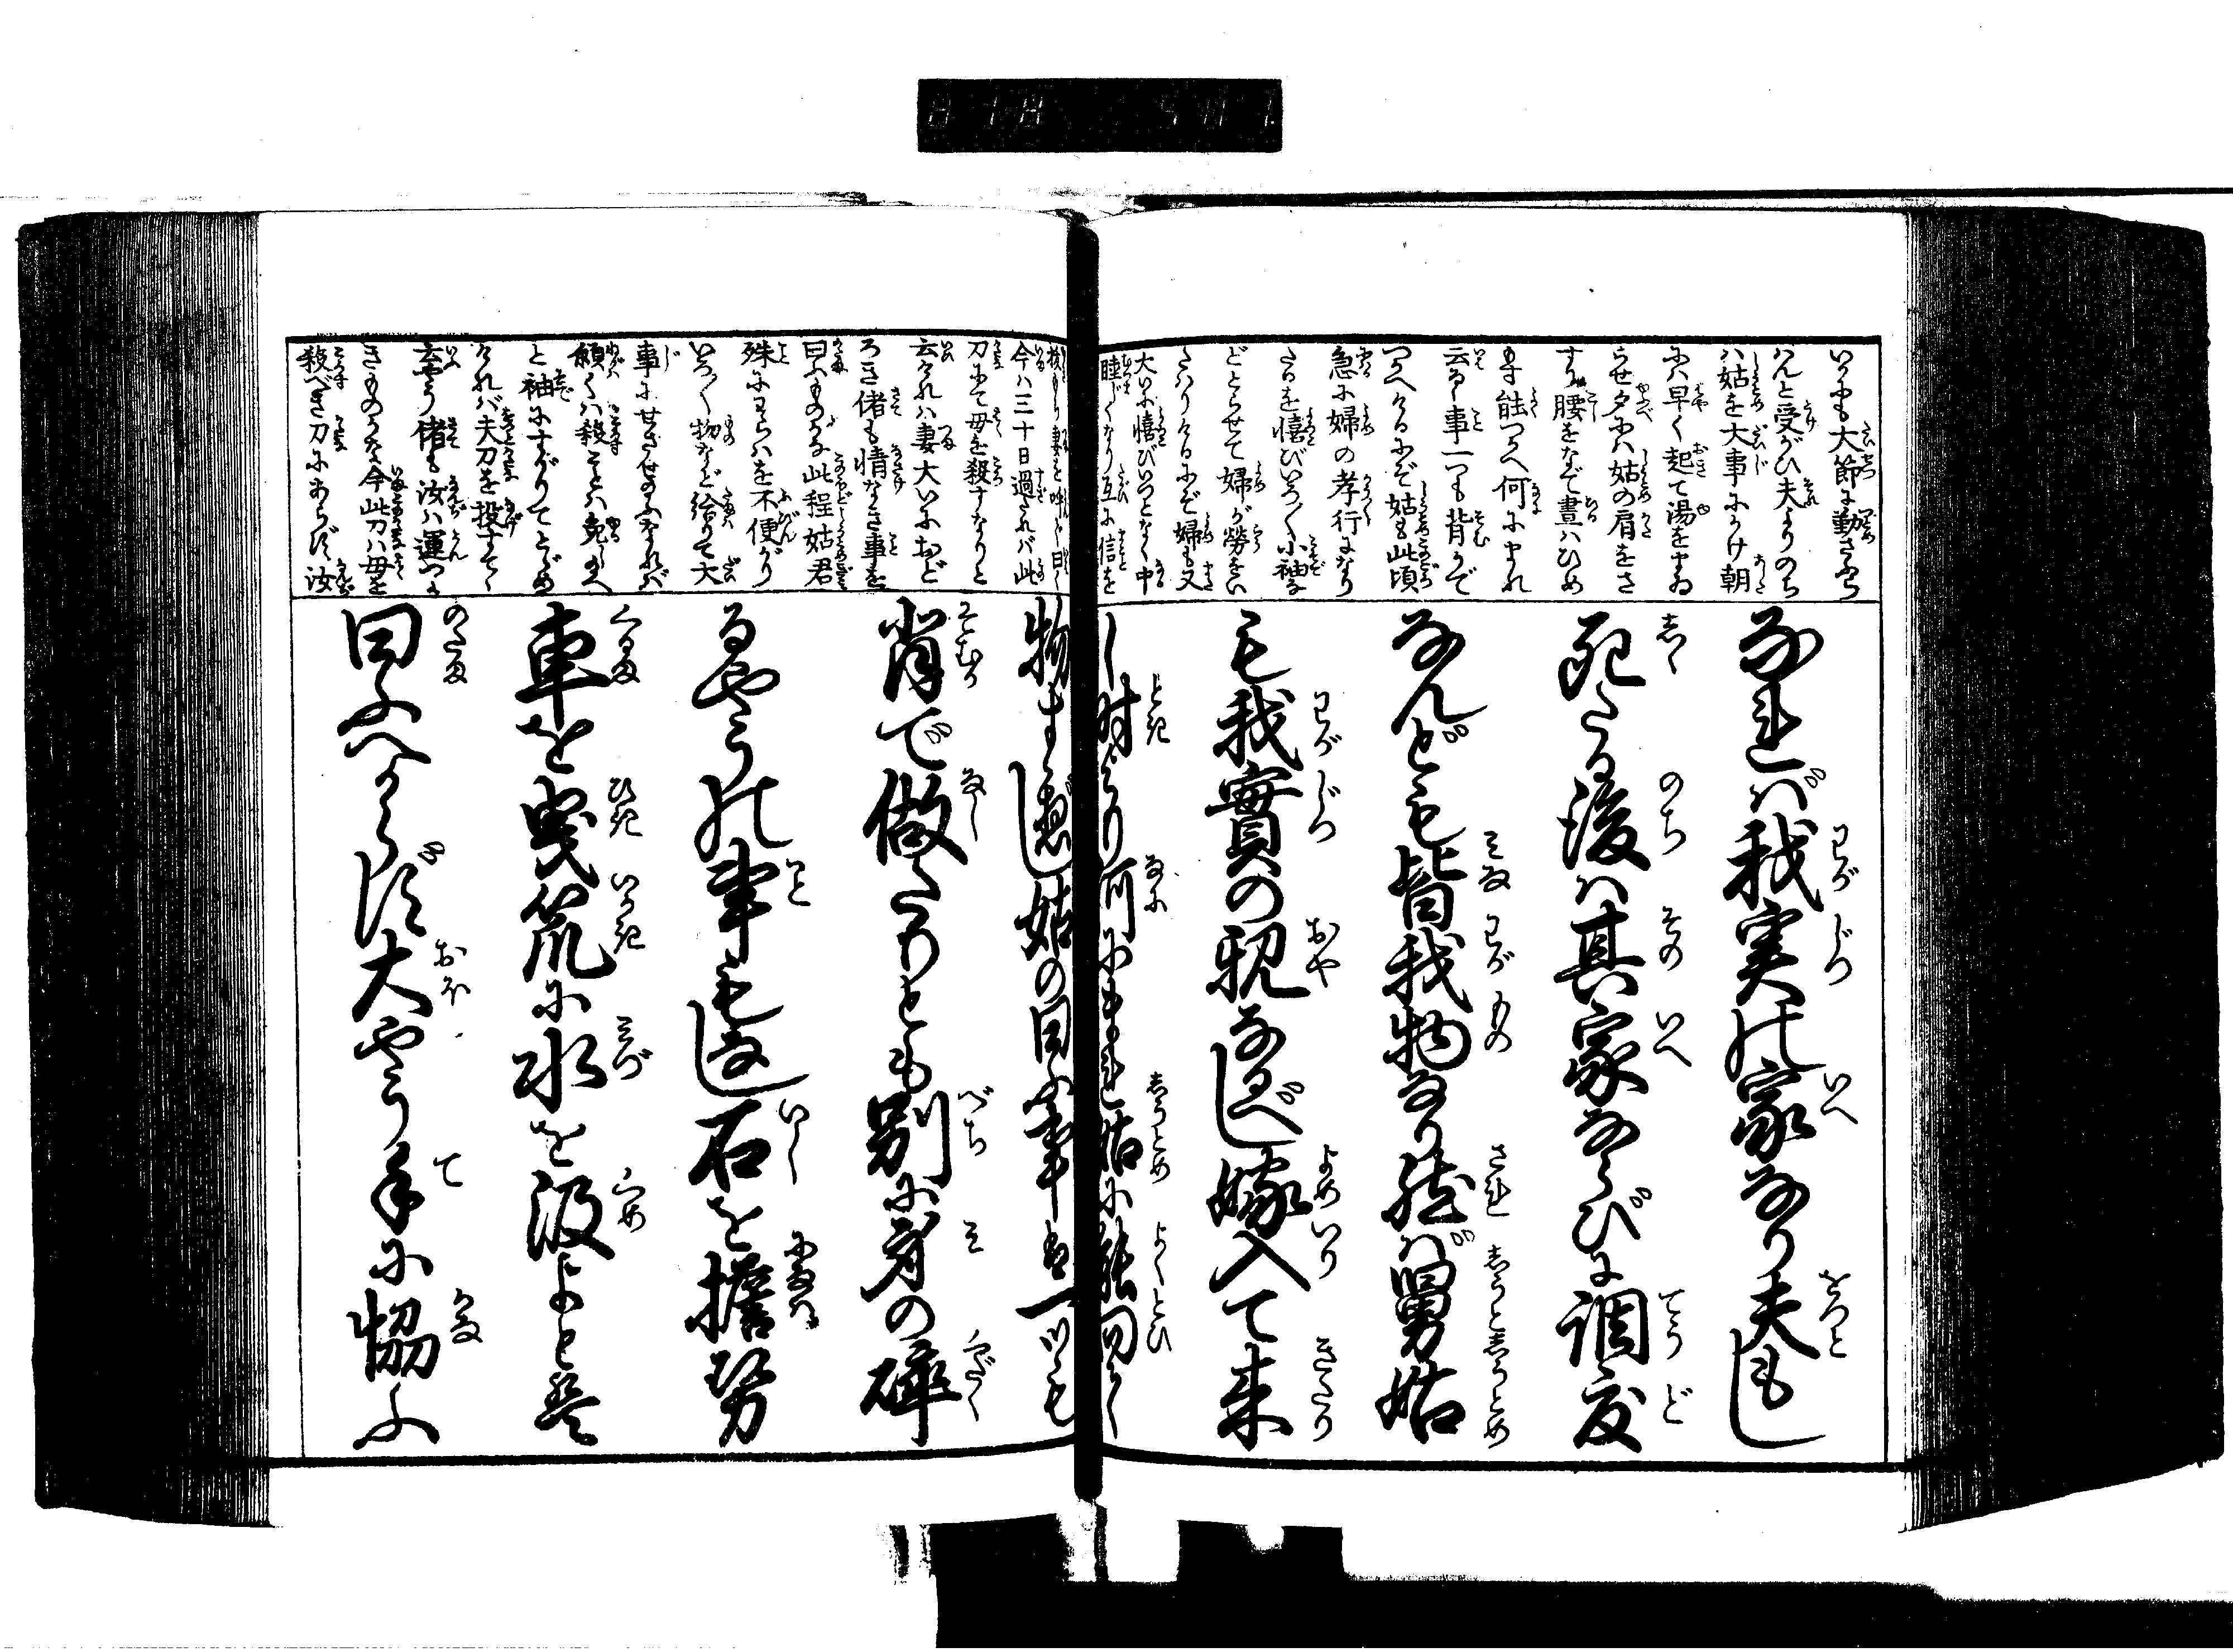 いかにも大節に勤さふら
はんと受がひ夫よりのち
ハ姑を大事にかけ朝
にハ早く起て湯をまゐ
らせ夕にハ姑の肩をさ
すり腰をなで晝ハひめ
もす能つかへ何にまれ
云ふ事一つも背かで
つかへけるにぞ姑も此頃
急に婦の孝行になり
たるを憘びいろ〳〵小袖な
どとらせて婦が勞をい
たハりけるにぞ婦も又
大いに憘びいつとなく中
睦じくなり互に信を
なれば我実の家なり夫もし
死たる後ハ其家ならびに調度
なんども皆我物なり然ば舅姑
も我實の親なるべし嫁入て来
し時より何にまれ姑に能問く
今ハ三十日過ぎたれバ此
刀にて母を殺すなりと
云けれハ妻大いにおど
ろき偖も情なき事を
曰ふものかな此程姑君
殊にわらハを不便がり
いろ〳〵物など給りて大
事にせさせ給ふなれバ
願くハ殺ことハ免し給へ
と袖にすがりてとゞめ
けれバ夫刀を投すてゝ
云やう偖も汝ハ運つよ
きものかな今此刀ハ母を
殺べき刀にあらず汝
物すべし惣じ姑の曰ふ事を一ツも
背で做たりとも別に身の砕
るやうの事もなし石を擔努
車を曳笊に水を汲よとは
曰ふべからず大やう手に協ふ